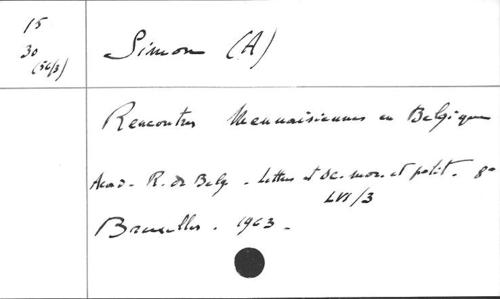 15
30
(56/3)
Simon (A)
Rencontres Mennaisiennes en Belgique
Acad. R. de Belg. - Lettres et Sc. mor. et polit. - 8°
LVI/3
Bruxelles. - 1963 -